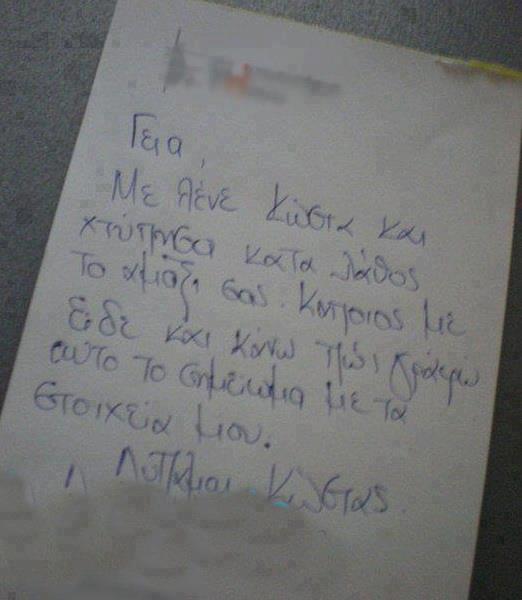 Γεια,
Με λένε Κώστα και
χτύπησα κατα λάθος
το αμαξι σας. Καποιος με
ειδε και κάνω πώς γράφω
αυτο το σημείωμα με τα
στοιχεία μου.
Λυπαμαι Κώστας.